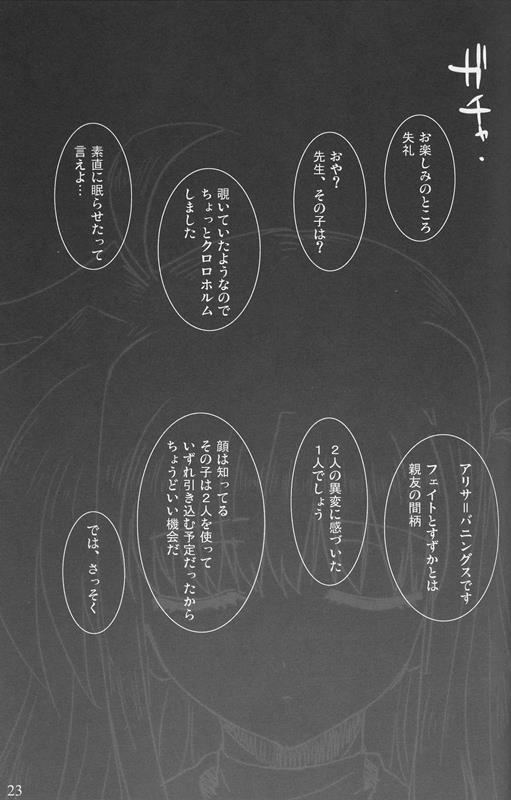 ガチャ・
お楽しみのところ
失礼
おや？
先生、その子は？
覗いていたようなので
ちょっとクロロホルム
しました
素直に眠らせたって
言えよ…
アリサ＝バニングスです
フェイトとすずかとは
親友の間柄
２人の異変に感づいた
１人でしょう
顔は知ってる
その子は２人を使って
いずれ引き込む予定だったから
ちょうどいい機会だ
では、さっそく
23